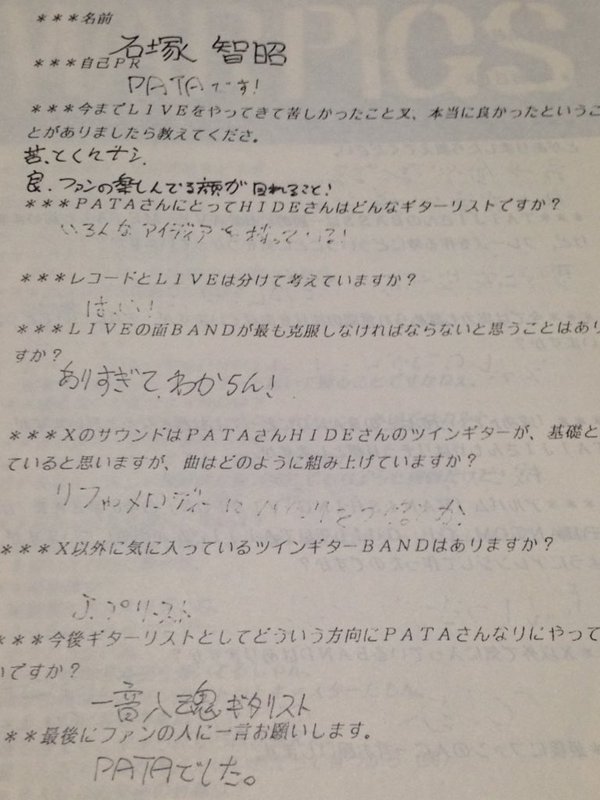 ***名前
石塚 智昭
***自己PR
PATAです!
***今までLIVEをやってきて苦しかったこと又、本当に良かったというこ
とがありましたら教えてくださ。
苦、とくにナシ、
良、ファンの楽しんでる顔が回れること!
***PATAさんにとってHIDEさんはどんなギターリストですか?
いろんなアイディアを持っている!
***レコードとLIVEは分けて考えていますか?
はい!
***LIVEの面BANDが最も克服しなければならないと思うことはあり
すか?
ありすぎて、わからん!
***XのサウンドはPATAさんHIDEさんのツインギターが、基礎と
ていると思いますが、曲はどのように組み上げていますか?
リフやメロディーに
***X以外に気に入っているツインギターBANDはありますか?
J.プリースト
***今後ギターリストとしてどういう方向にPATAさんなりにやって
いですか?
一音入魂ギタリスト
**最後にファンの人に一言お願いします。
PATAでした。